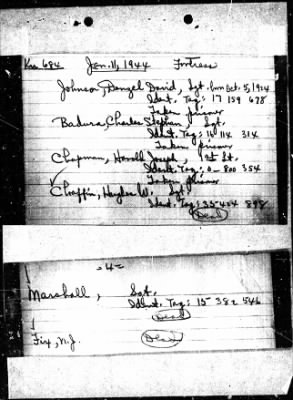 Kue 684 Jan. 11, 1944 Fortress
Johnson, Denzel David, Sgt. born Oct. 5, 1924
Ident. Tag: 17 159 678
Taken prisoner
Badura, Charles Stephan, Sgt.
Ident. Tag: 16 114 314
Taken prisoner
Chapman, Howell Joseph, 1st Lt.
Ident. Tag: O-800 354
Taken prisoner
Chaffin, W. Sgt.
Ident. Tag: 35 454 898
Dead
-4-
Marshall, Sgt.
Ident. Tag: 15 382 546
Dead
Fix, N.J. Dead